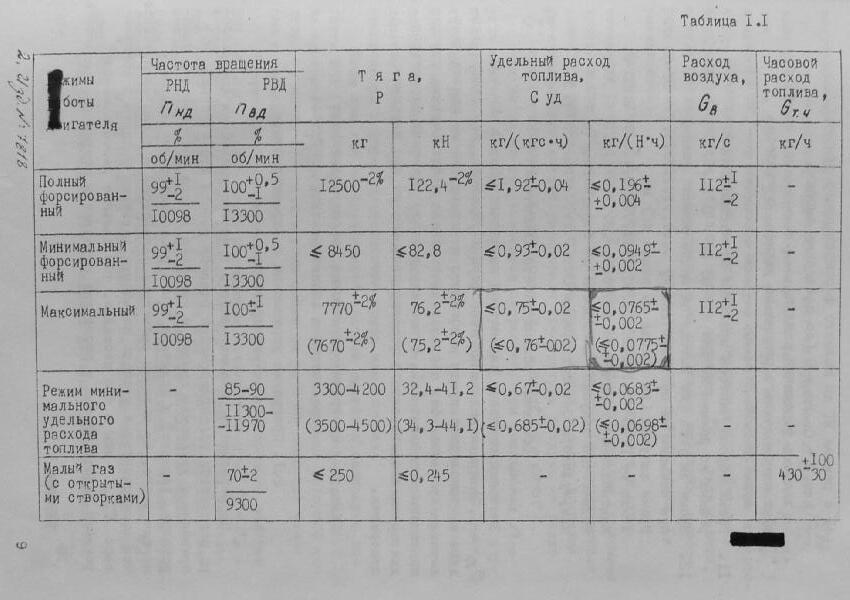 Таблица I.I
2. Изд №
Режимы работы двигателя | Частота вращения | Тяга, Р | Удельный расход топлива, С уд | Расход воздуха, Gв | Часовой расход топлива, Gт.ч
РНД nнд | РВД nвд
% об/мин | % об/мин | кг | кН | кг/(кгс•ч) | кг/(Н•ч) | кг/с | кг/ч
Полный форсирован-ный | 99+I-2 / I0098 | I00+0,5-I / I3300 | I2500-2% | I22,4-2% | ≤I,92±0,04 | ≤0,I96± ±0,004 | II2+I-2 | -
Минимальный форсирован-ный | 99+I-2 / I0098 | I00+0,5-I / I3300 | ≤ 8450 | ≤82,8 | ≤0,93±0,02 | ≤0,0949± ±0,002 | II2+I-2 | -
Максимальный | 99+I-2 / I0098 | I00±I / I3300 | 7770±2% (7670±2%) | 76,2±2% (75,2±2%) | ≤0,75±0,02 (≤0,76±002) | ≤0,0765± ±0,002 (≤0,0775± ±0,002) | II2+I-2 | -
Режим мини-мального удельного расхода топлива | - | 85-90 / II300- -II970 | 3300-4200 (3500-4500) | 32,4-4I,2 (34,3-44,I) | ≤0,67±0,02 (≤0,685±0,02) | ≤0,0683± ±0,002 (≤0,0698± ±0,002) | - | -
Малый газ (с открыты-ми створками) | - | 70±2 / 9300 | ≤ 250 | ≤0,245 | - | - | - | 430+I00-30
9